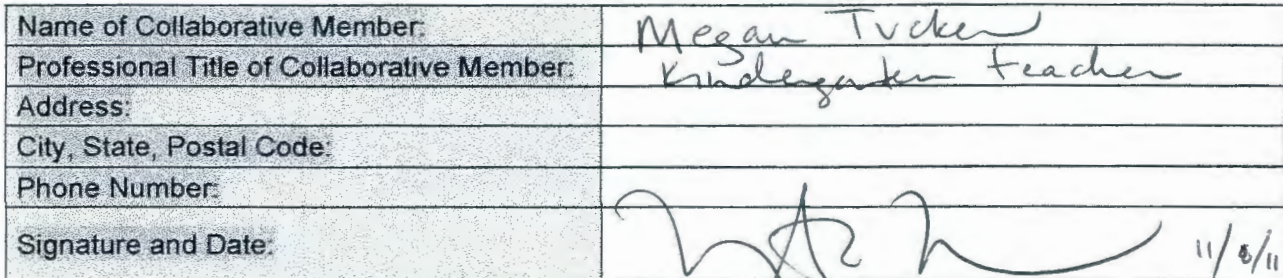 Name of Collaborative Member: Megan Tucker
Professional Title of Collaborative Member: Kindergarten teacher
Address:
City, State, Postal Code:
Phone Number:
Signature and Date: